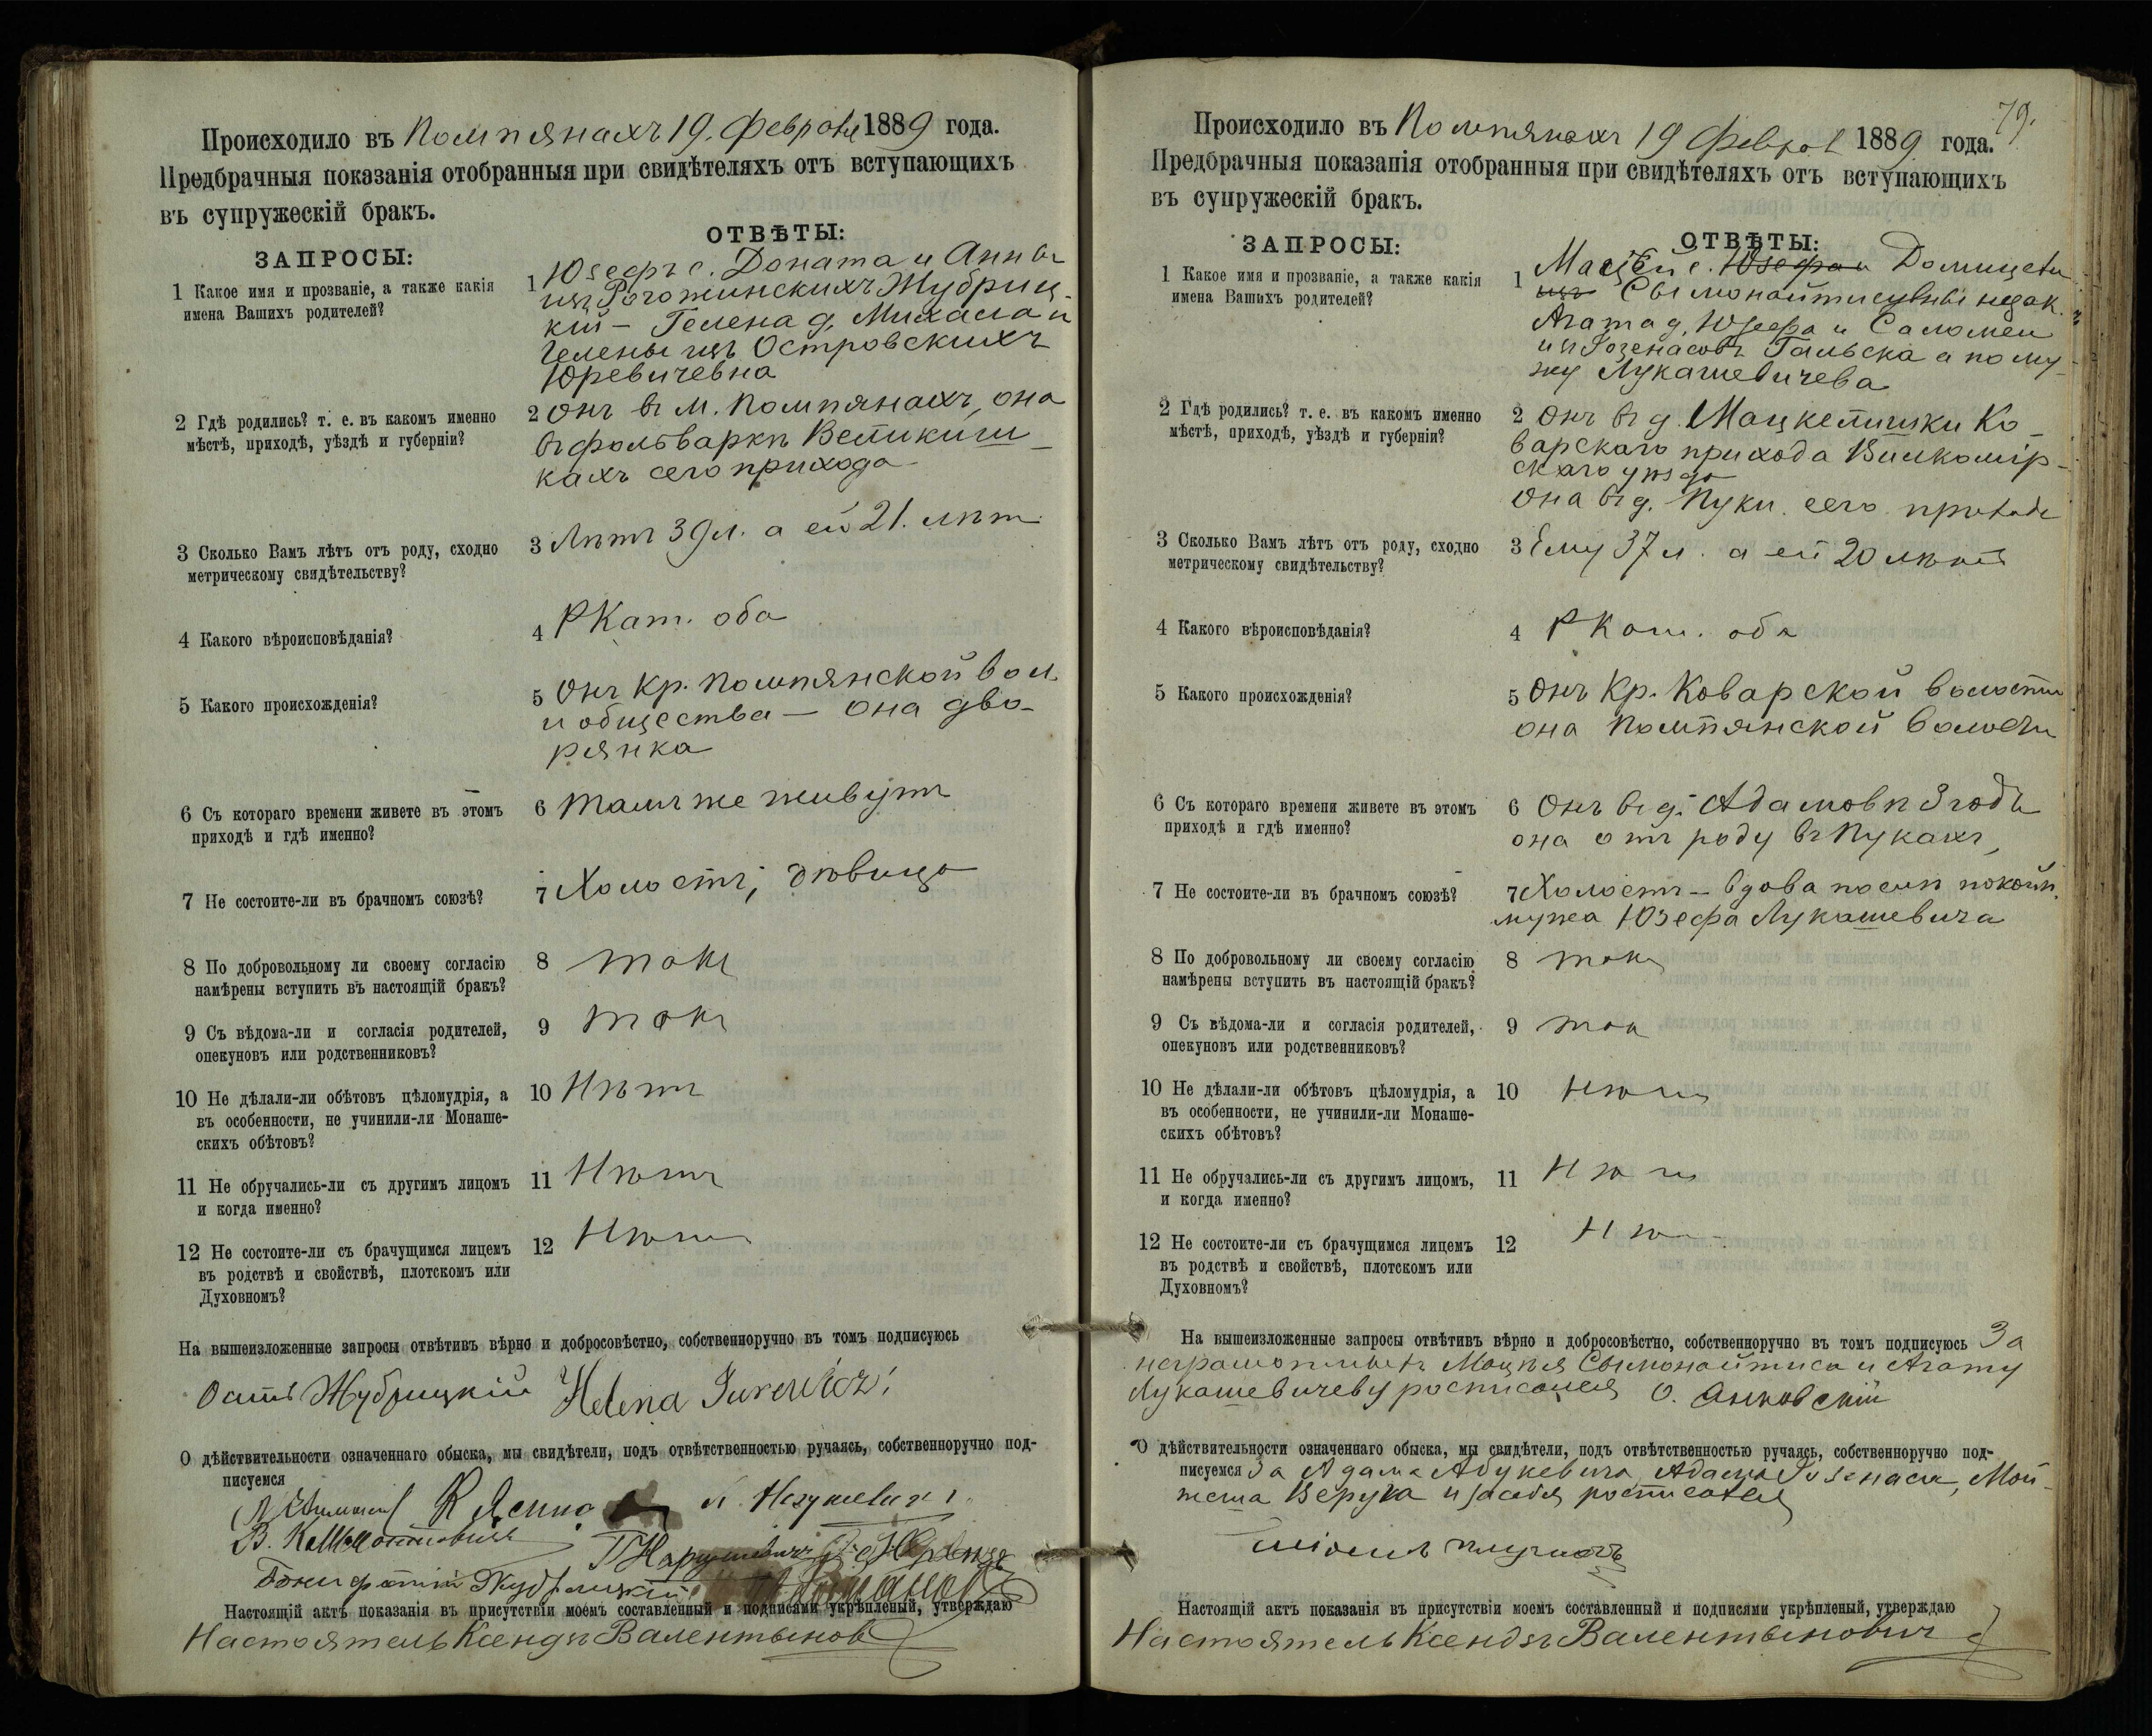 Происходило въ Помпянахъ 19. Февраля 1889 года.
Предбрачныя показанія отобранныя при свидѣтеляхъ отъ вступающихъ
въ супружескій бракъ.
ЗАПРОСЫ:
ОТВѢТЫ:
1 Какое имя и прозваніе, а также какія
имена Вашихъ родителей?
1 Юзефъ с. Доната и Анны
изъ Рогожинскихъ Жубриц-
кій – Гелена д. Михаила и
Гелены изъ Островскихъ
Юревичевна
2 Гдѣ родились? т. е. въ какомъ именно
мѣстѣ, приходѣ, уѣздѣ и губерніи?
2 Онъ въ м. Помпянахъ, она
въ фольваркѣ Великиш-
кахъ сего прихода
3 Сколько Вамъ лѣтъ отъ роду, сходно
метрическому свидѣтельству?
3 Лѣтъ 39 л. а ей 21. лѣт
4 Какого вѣроисповѣданія?
4 РКат. оба
5 Какого происхожденія?
5 Онъ кр. Помпянской вол.
и общества – она дво-
рянка
6 Съ котораго времени живете въ этомъ
приходѣ и гдѣ именно?
6 Тамъ же живутъ
7 Не состоите-ли въ брачномъ союзѣ?
7 Холостъ; дѣвица
8 По добровольному ли своему согласію
намѣрены вступить въ настоящій бракъ?
8 такъ
9 Съ вѣдома-ли и согласія родителей,
опекуновъ или родственниковъ?
9 такъ
10 Не дѣлали-ли обѣтовъ цѣломудрія, а
въ особенности, не учинили-ли Монаше-
скихъ обѣтовъ?
10 Нѣтъ
11 Не обручались-ли съ другимъ лицомъ
и когда именно?
11 Нѣтъ
12 Не состоите-ли съ брачущимся лицемъ
въ родствѣ и свойствѣ, плотскомъ или
Духовномъ?
12 Нѣтъ
На вышеизложенные запросы отвѣтивъ вѣрно и добросовѣстно, собственноручно въ томъ подписуюсь
Жубрицкій Helena Jurewicz
О дѣйствительности означеннаго обыска, мы свидѣтели, подъ отвѣтственностью ручаясь, собственноручно под-
писуемся
Жубрицкій
Настоящій актъ показанія въ присутствіи моемъ составленный и подписями укрѣпленый, утверждаю
Настоятель Ксендзъ Валентынов
79.
Происходило въ Помпянахъ 19 Феврал 1889 года.
Предбрачныя показанія отобранныя при свидѣтеляхъ отъ вступающихъ
въ супружескій бракъ.
ЗАПРОСЫ:
ОТВѢТЫ:
1 Какое имя и прозваніе, а также какія
имена Вашихъ родителей?
1 Мацѣй с. Юзефа и Домицели
изъ Сымонайтисувны незак.
Агата д. Юзефа и Саломеи
изъ Розенасовъ Гальска а по му-
жу Лукашевичева
2 Гдѣ родились? т. е. въ какомъ именно
мѣстѣ, приходѣ, уѣздѣ и губерніи?
2 Онъ въ д. Мацкелишки Ко-
варскаго прихода Вилкомір-
скаго уѣзда
Она въ д. Пуки сего прихода
3 Сколько Вамъ лѣтъ отъ роду, сходно
метрическому свидѣтельству?
3 Ему 37 л. а ей 20 лѣтъ
4 Какого вѣроисповѣданія?
4 РКат. оба
5 Какого происхожденія?
5 Онъ Кр. Коварской волости
она Помпянской волости
6 Съ котораго времени живете въ этомъ
приходѣ и гдѣ именно?
6 Онъ въ д. Адамовѣ 3 года
она отъ роду въ Пукахъ,
7 Не состоите-ли въ брачномъ союзѣ?
7 Холостъ – вдова послѣ покойн.
мужа Юзефа Лукашевича
8 По добровольному ли своему согласію
намѣрены вступить въ настоящій бракъ?
8 такъ
9 Съ вѣдома-ли и согласія родителей,
опекуновъ или родственниковъ?
9 так
10 Не дѣлали-ли обѣтовъ цѣломудрія, а
въ особенности, не учинили-ли Монаше-
скихъ обѣтовъ?
10 Нѣтъ
11 Не обручались-ли съ другимъ лицомъ,
и когда именно?
11 Нѣтъ
12 Не состоите-ли съ брачущимся лицемъ
въ родствѣ и свойствѣ, плотскомъ или
Духовномъ?
12 Нѣт
На вышеизложенные запросы отвѣтивъ вѣрно и добросовѣстно, собственноручно въ томъ подписуюсь За
неграмотныхъ Мацѣя Сымонайтиса и Агату
Лукашевичеву росписался О.
О дѣйствительности означеннаго обыска, мы свидѣтели, подъ отвѣтственностью ручаясь, собственноручно под-
писуемся За Адама Абукевича, Адама Розенаса, Мой-
жеша Верука и за себя росписался
Настоящій актъ показанія въ присутствіи моемъ составленный и подписями укрѣпленый, утверждаю
Настоятель Ксендзъ Валентыновичъ